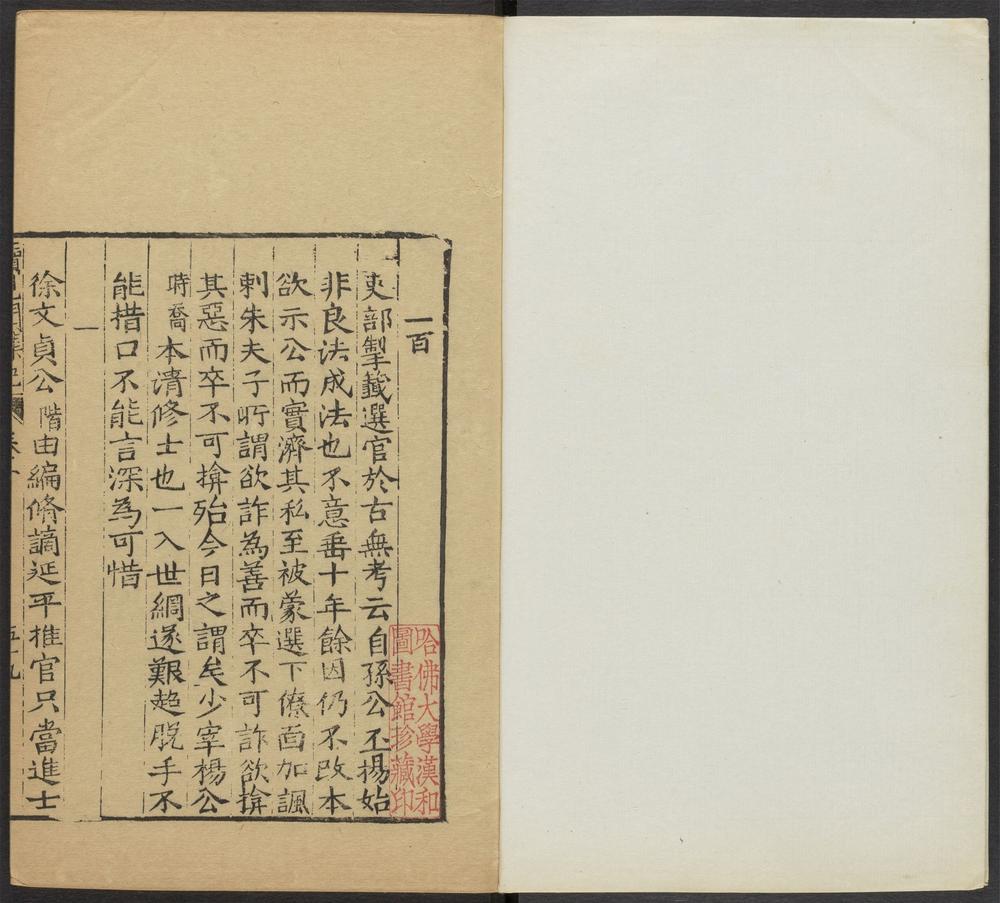 一百
吏部掣籤選官於古無考云自孫公丕揚始
非良法成法也不意垂十年餘因仍不改本
欲示公而實濟其私至被蒙選下僚面加諷
刺朱夫子所謂欲詐為善而卒不可詐欲揜
其惡而卒不可揜殆今日之謂矣少宰楊公
時喬本清修士也一入世網遂難超脫手不
能措口不能言深為可惜
一
徐文貞公階由編脩謫延平推官只當進士
五十九
哈佛大學漢和
圖書館珍藏印